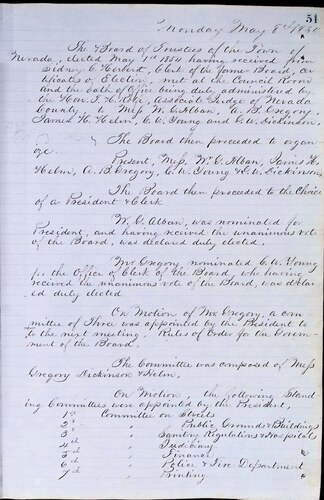 51
Monday May 8th
The Board of Trustees of the Town of
Nevada, elected May 1st 1854 having received from
Sidney C. Herbert, Clerk of the former Board, cer
tificates of Election, met at the Council Room
and the oath of Office being duly administered by
the Hon. Associate Judge of Nevada
County to Mess W. G. Alban, A. B. Gregory,
James H. Helm, C. W. Young and G. W. Dickinson.
The Board then proceeded to organ
ize
Present, Mess. W. G. Alban, James H.
Helm, A. B. Gregory, C. W. Young & G. W. Dickinson
The Board then proceeded to the Choice
of a President & Clerk
W. G. Alban, was nominated for
President, and having received the unanimous vote
of the Board, was declared duly elected.
Mr Gregory nominated C. W. Young
for the Office of Clerk of the Board, who having
received the unanimous vote of the Board, was declar
ed duly elected
On Motion of Mr Gregory, a com
mittee of Three was appointed by the President to
to the next meeting, Rules of Order for the Govern
ment of the Board.
The Committee was composed of Mess
Gregory Dickinson & Helm.
On Motion, the following Stand
ing Committees were appointed by the President,
1st Committee on Streets
2d " Public Grounds & Buildings
3d " Sanitary Regulations & Hospitals
4th " Judiciary
5th " Finance
6th " Police & Fire Department
7th " Printing